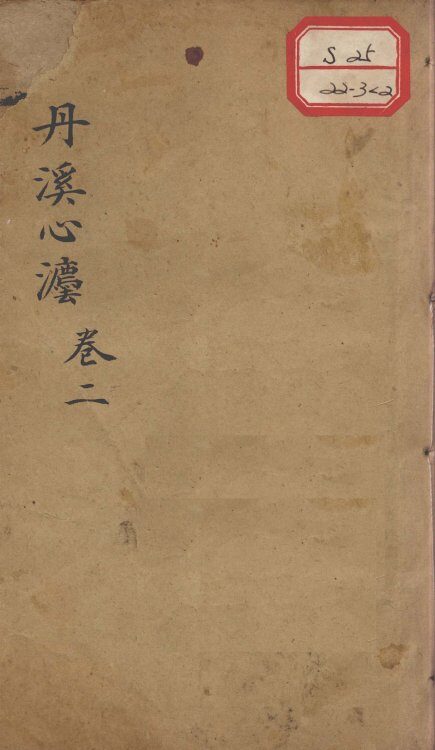 S 25
22-3<2
丹溪心灋
卷二